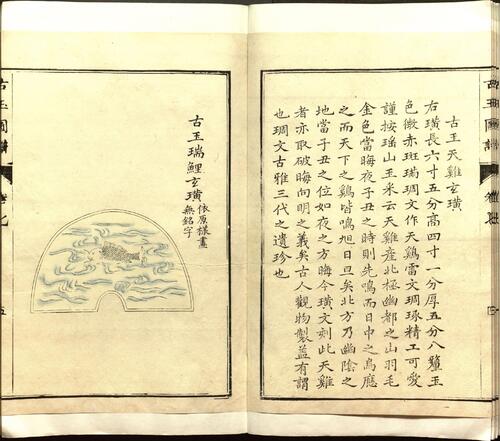 古玉天雞玄璜
右璜長六寸五分高四寸一分厚五分八釐玉
色微赤斑瑞琱文作天雞雷文琱琢精工可愛
謹按瑶山玉来云天雞產北極幽都之山羽毛
金色當晦夜子丑之時則先鳴而日中之烏應
之而天下之鷄皆鳴旭日旦矣北方乃幽陰之
地當子丑之位如夜之方晦今璜文刻此天雞
者亦取破晦向明之義矣古人觀物製蓋有謂
也琱文古雅三代之遺珍也
古玉瑞鯉玄璜
依原樣畫
無銘字
古玉圖譜
五